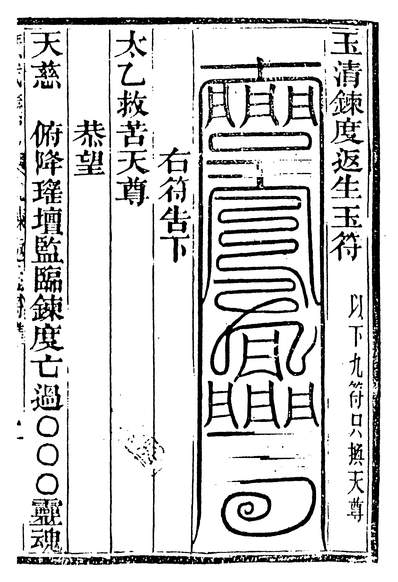 玉清鍊度返生玉符 以下九符只換天尊
右符告下
太乙救苦天尊
恭望
天慈 俯降瑤壇監臨鍊度亡過〇〇〇靈魂